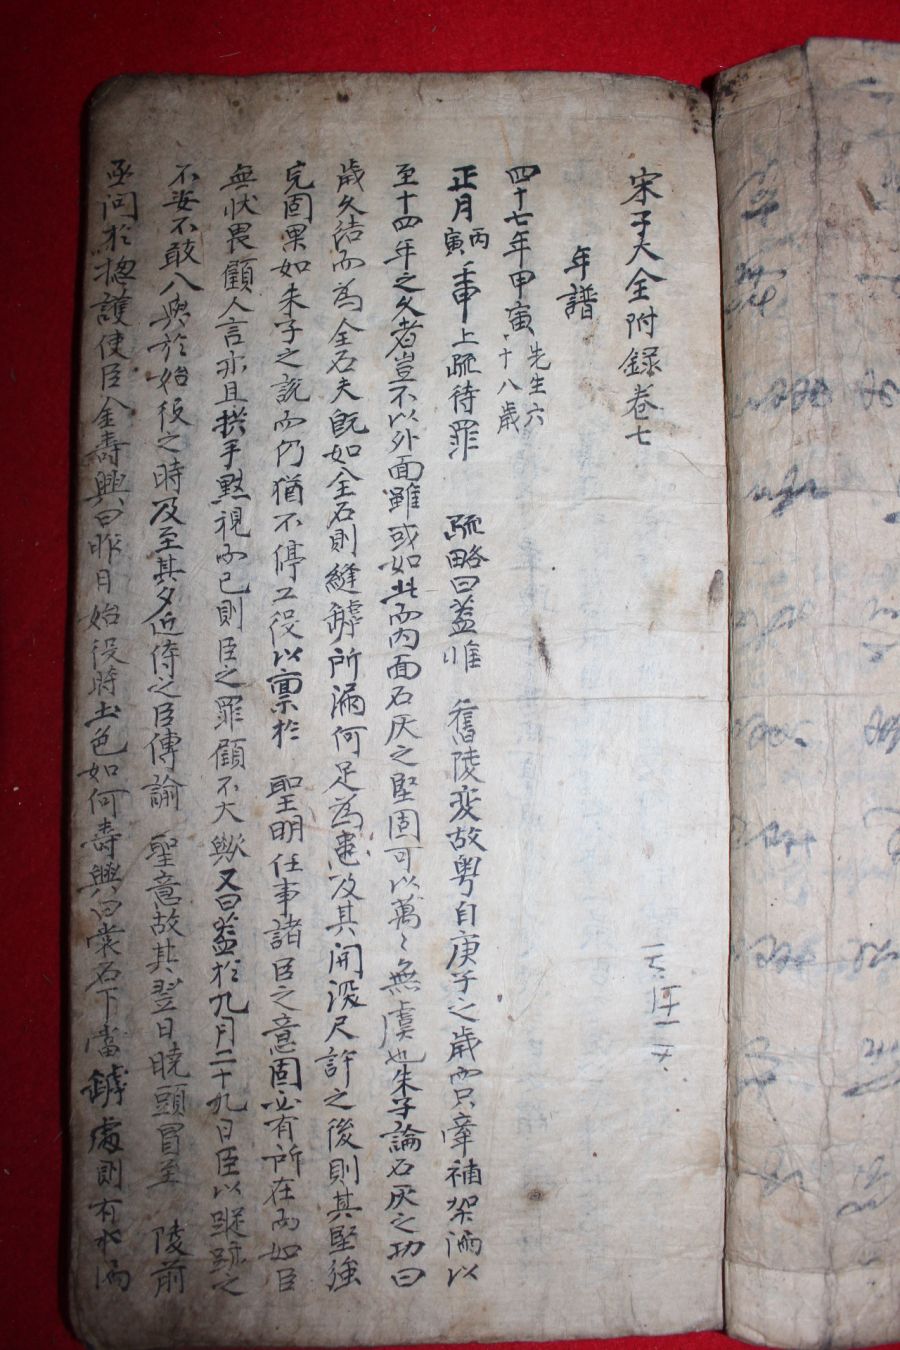 宋子大全附録卷七
年譜
四十七年甲寅 先生六十八歲
正月丙寅 壬申上疏待罪 疏略曰蓋惟 舊陵変故粤自庚子之歲而只牵補架漏以
至十四年之久者豈不以外面雖或如此而内面石灰之堅固可以萬〻無虞也朱子論石灰之功曰
歲久結而為全石夫既如全石則縫罅所漏何足為患及其開深尺許之後則其堅強
完固果如朱子之說而仍猶不停工役以禀於 聖明任事諸臣之意固必有所在而如臣
無狀畏顧人言亦且拱手黙視而已則臣之罪顧不大歟又曰蓋於九月二十九日臣以蹤跡之
不安不敢入與於始役之時及至其夕近侍之臣傳諭 聖意故其翌日曉頭冒至 陵前
亟問於摠護使臣金壽興曰昨日始役時土色如何壽興曰裳石下當罅處則有水漏